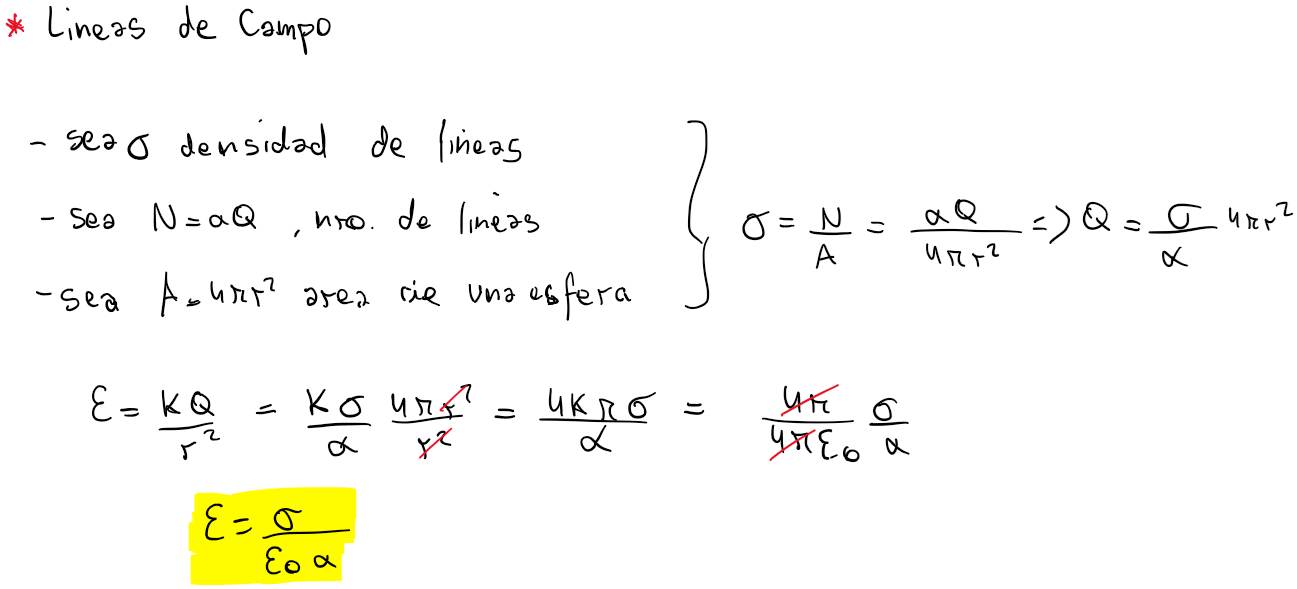 * Lineas de Campo
- sea σ densidad de lineas
- sea N = αQ , nro. de lineas
- sea A = 4πr² area de una esfera
σ = N/A = αQ/4πr² => Q = σ/α 4πr²
ℰ = KQ/r² = Kσ/α 4πr²/r² = 4Kπσ/α = 4π/4πε₀ σ/α
ℰ = σ/ε₀ α